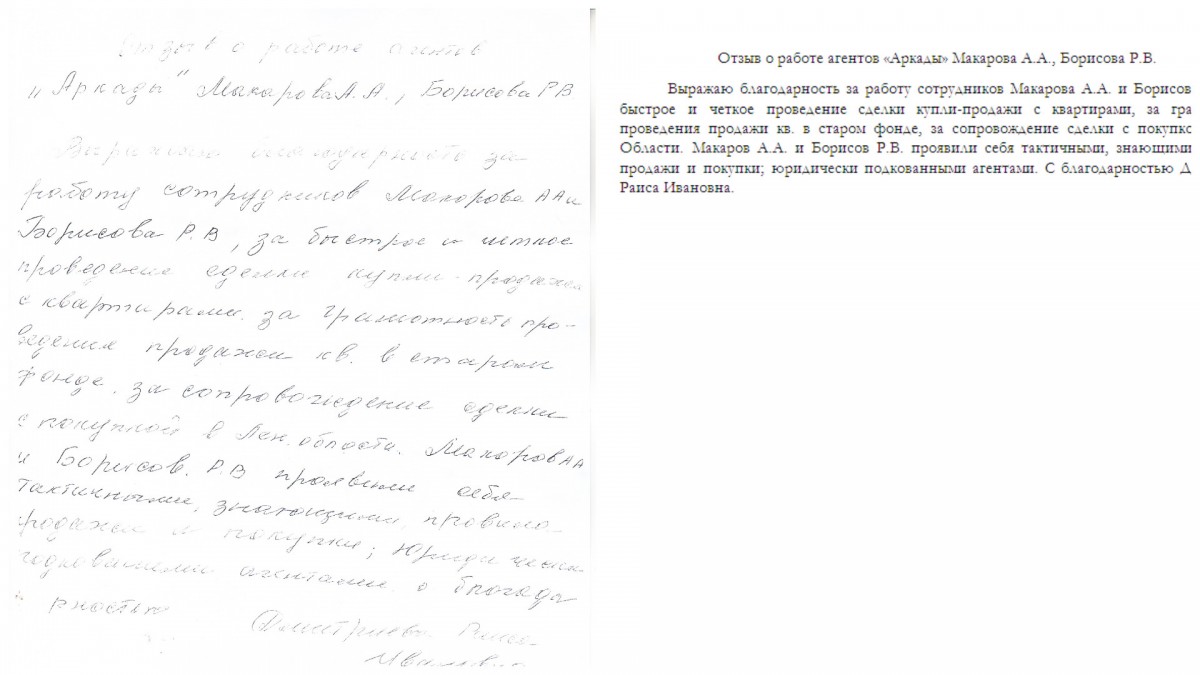 Отзыв о работе агентов
„Аркады" Макарова А.А., Борисова Р В
Выражаю благодарность за
работу сотрудников Макарова А А и
Борисова Р. В, за быстрое и четкое
проведение сделки купли-продажи
с квартирами. за грамотность про-
ведения продажи кв. в старом
фонде. за сопровождение сделки
с покупкой в Лен. области. Макаров А А
и Борисов. Р. В проявили себя
тактичными, знающими, правила
родажи и покупки; Юридически
подкованными агентами. с благода
рностью
Дмитриева Раиса
Ивановна
Отзыв о работе агентов «Аркады» Макарова А.А., Борисова Р.В.
Выражаю благодарность за работу сотрудников Макарова А.А. и Борисов
быстрое и четкое проведение сделки купли-продажи с квартирами, за гра
проведения продажи кв. в старом фонде, за сопровождение сделки с покупко
Области. Макаров А.А. и Борисов Р.В. проявили себя тактичными, знающими
продажи и покупки; юридически подкованными агентами. С благодарностью Д
Раиса Ивановна.